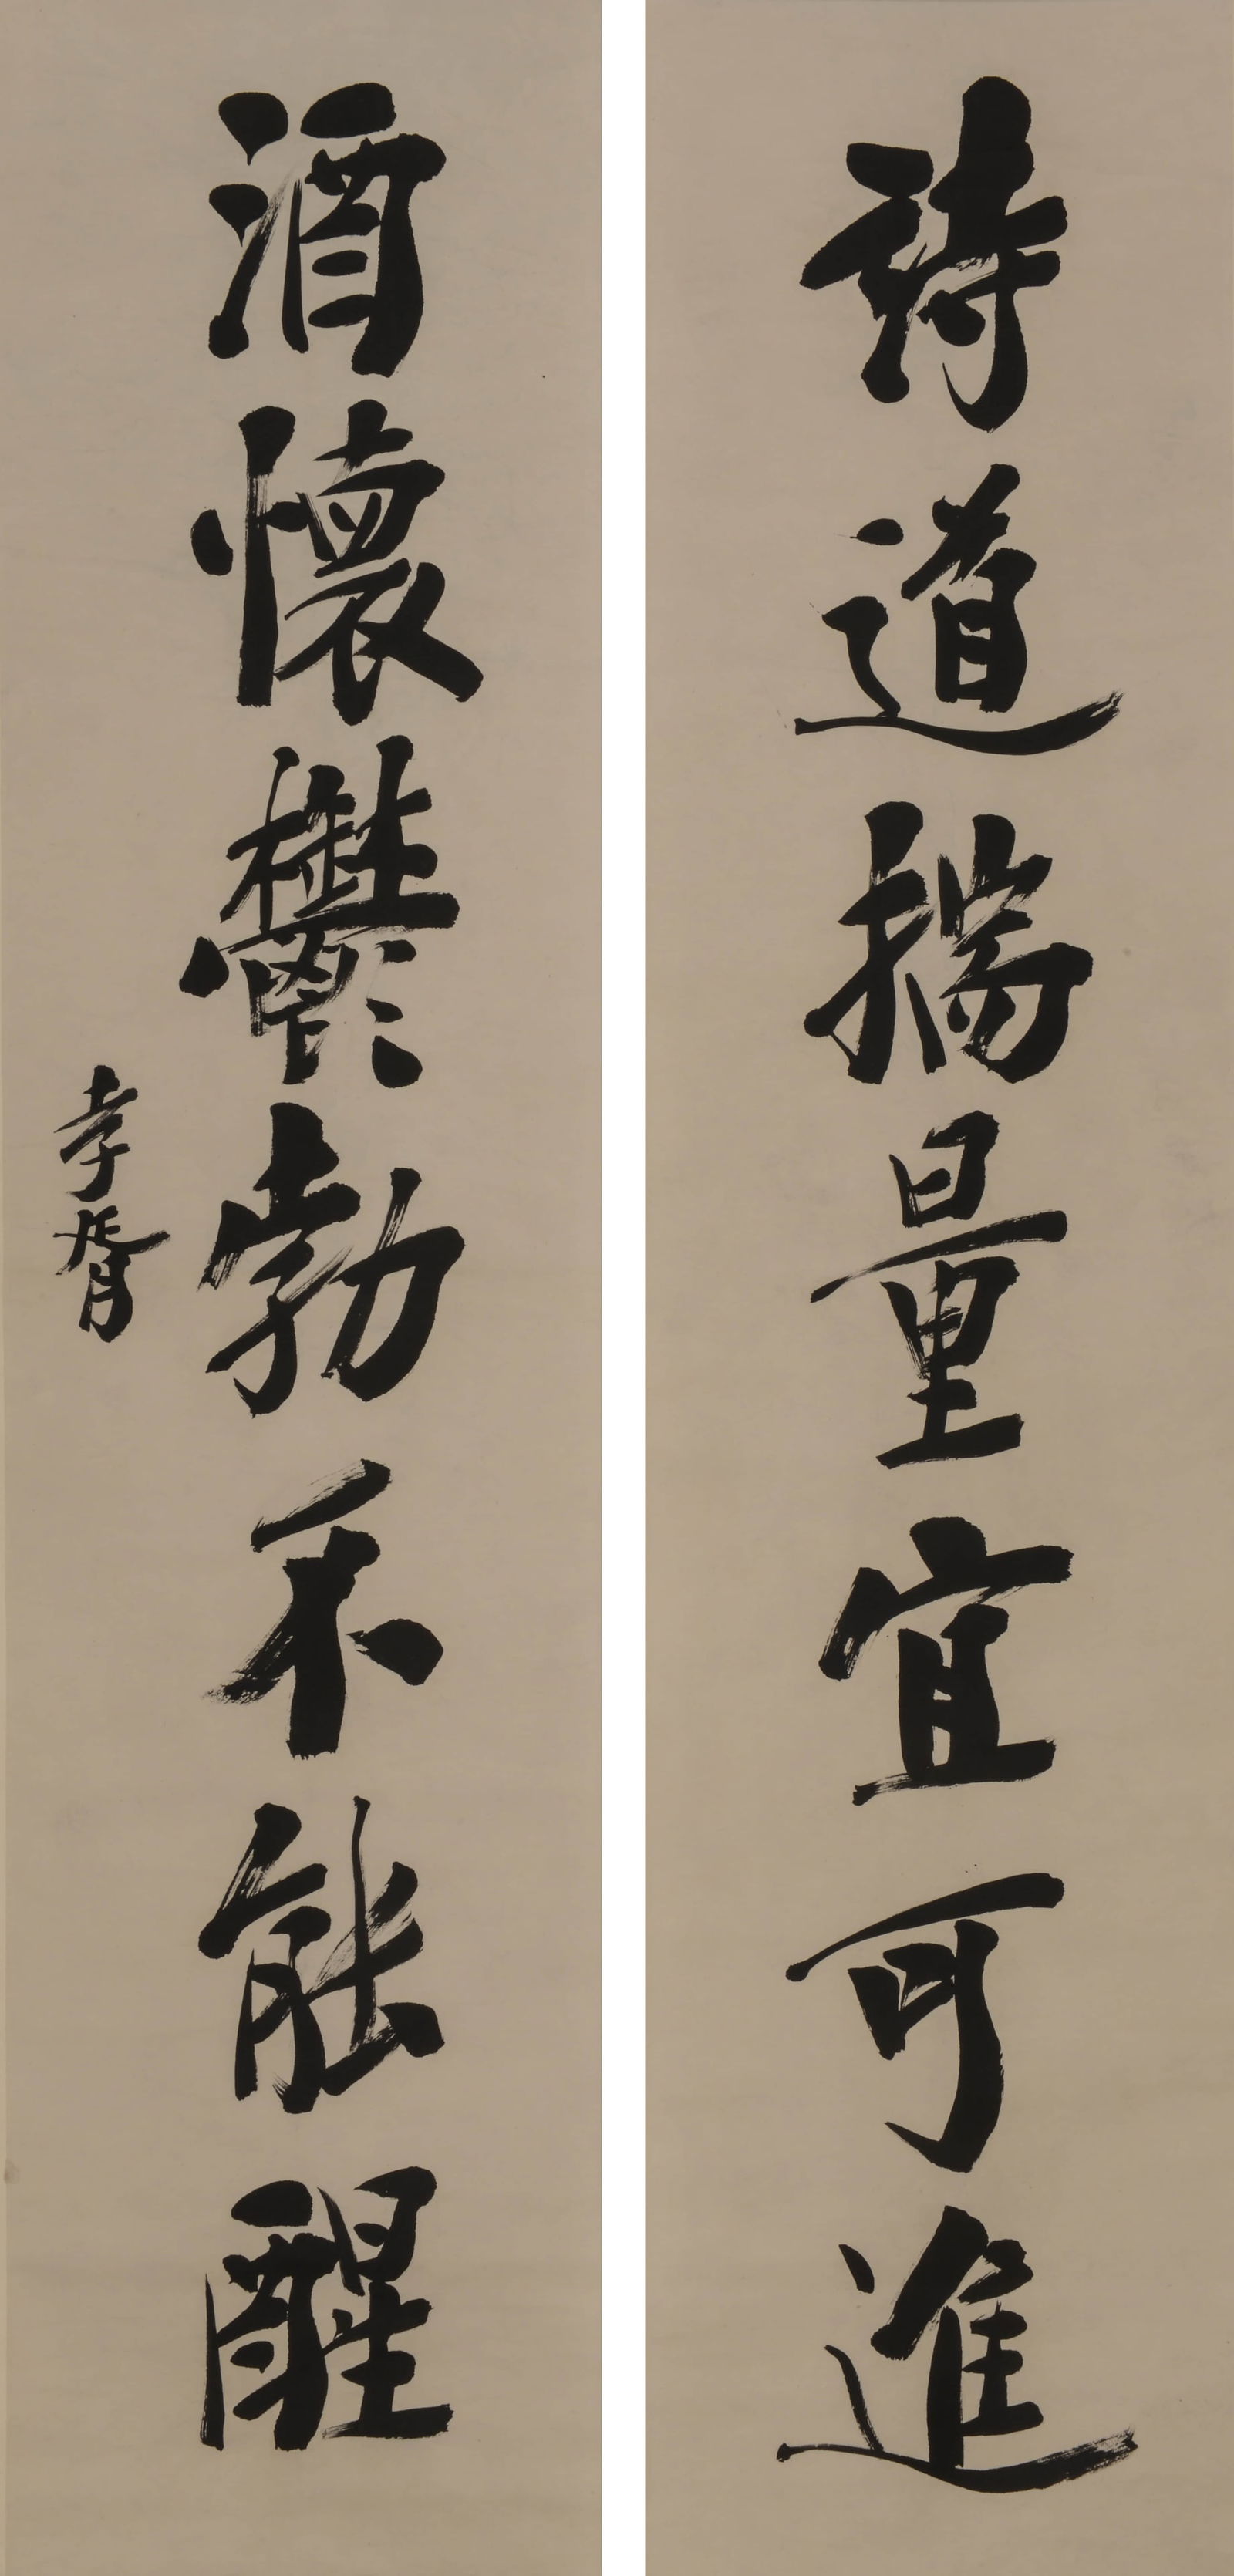 詩道揣量宜可進
酒懷鬱勃不能醒
孝胥